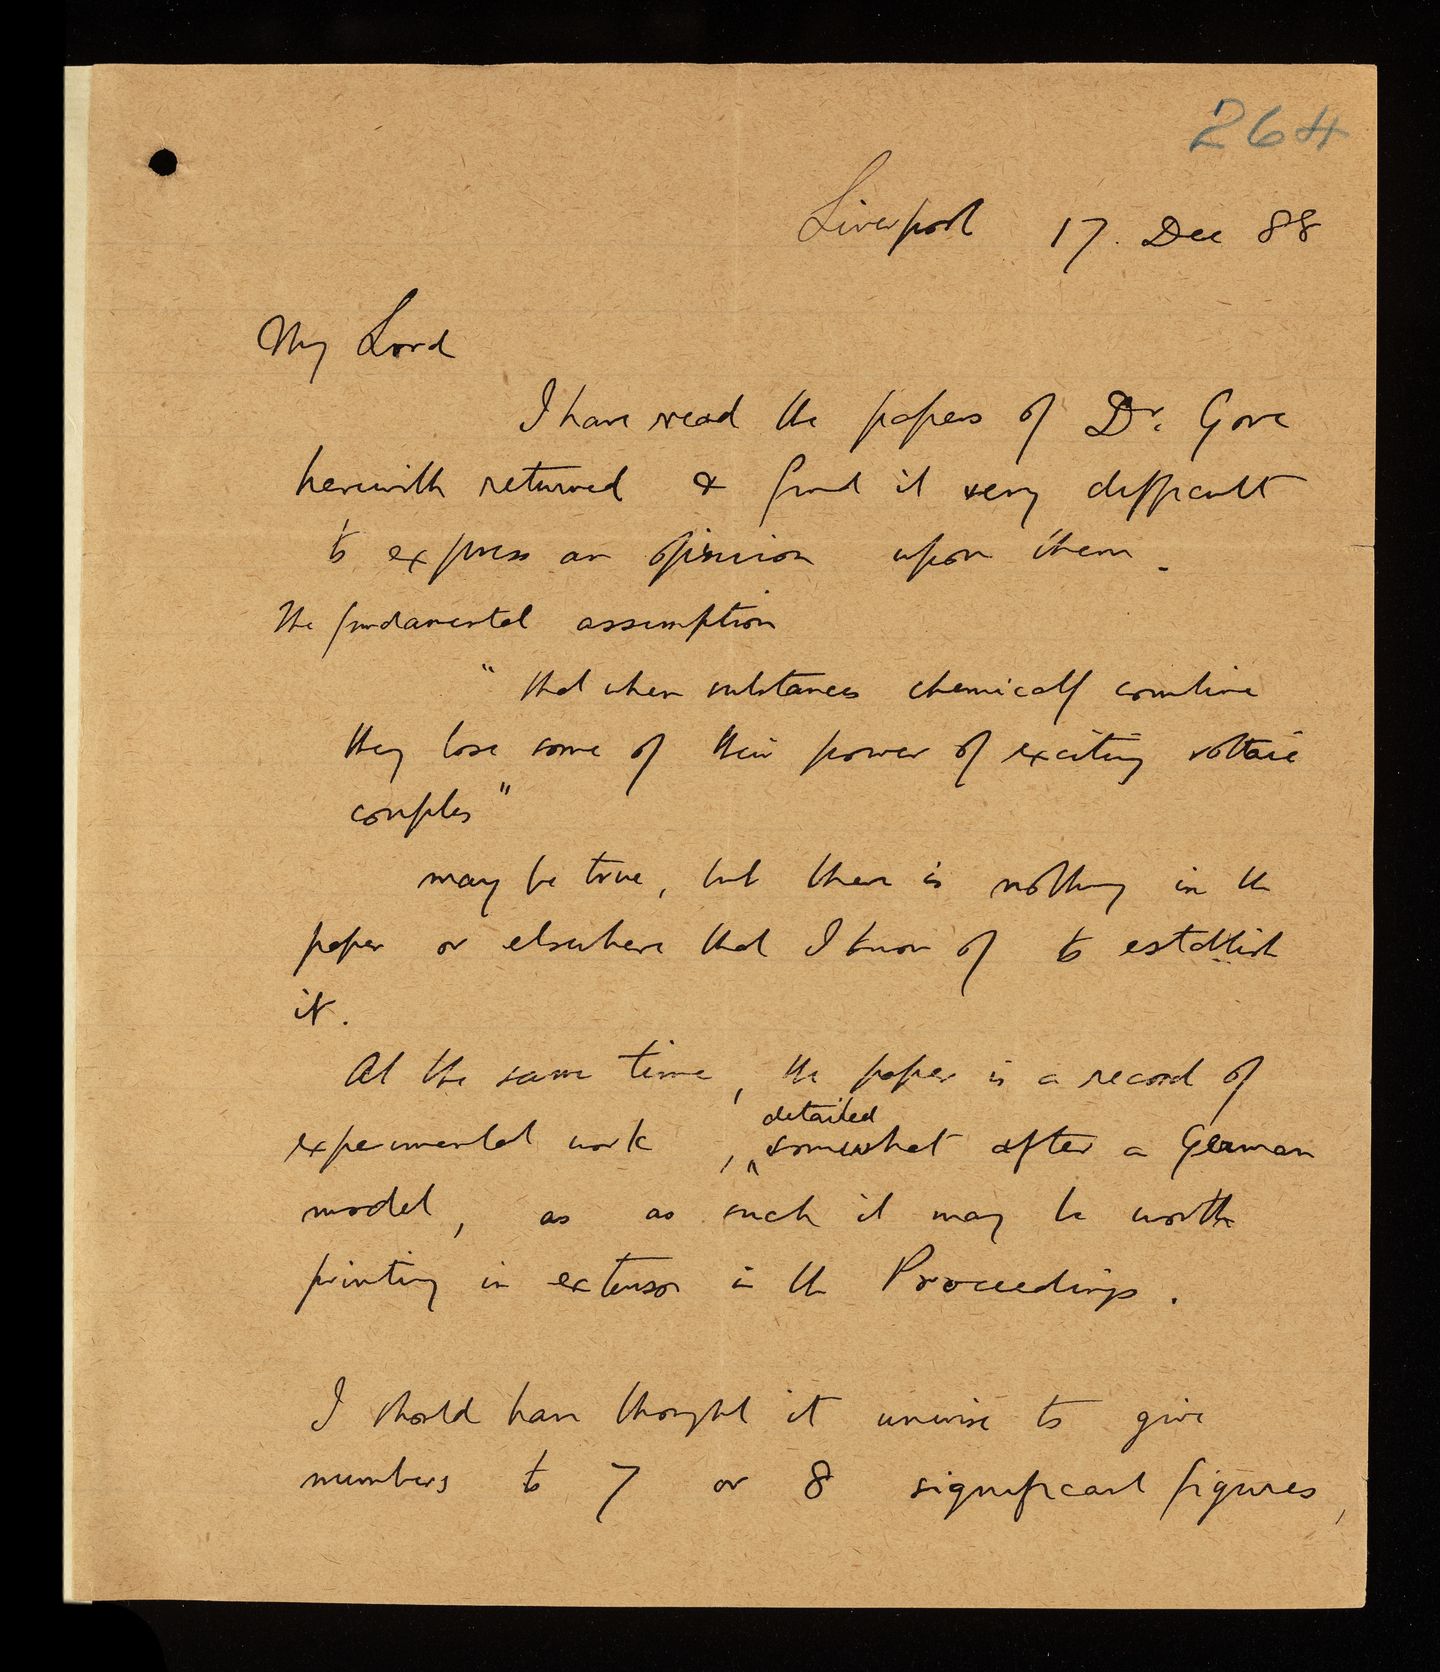 264
Liverpool 17. Dec 88
My Lord
I have read the papers of Dr. Gore
herewith returned & find it very difficult
to express an opinion upon them.
The fundamental assumption
"that when substances chemically combine
they lose some of their power of exciting voltaic
couples"
may be true, but there is nothing in the
paper or elsewhere that I know of to establish
it.
At the same time, the paper is a record of
detailed
experimental work, ^ somewhat after a German
model, as as such it may be worth
printing in extenso in the Proceedings.
I should have thought it unwise to give
numbers to 7 or 8 significant figures,